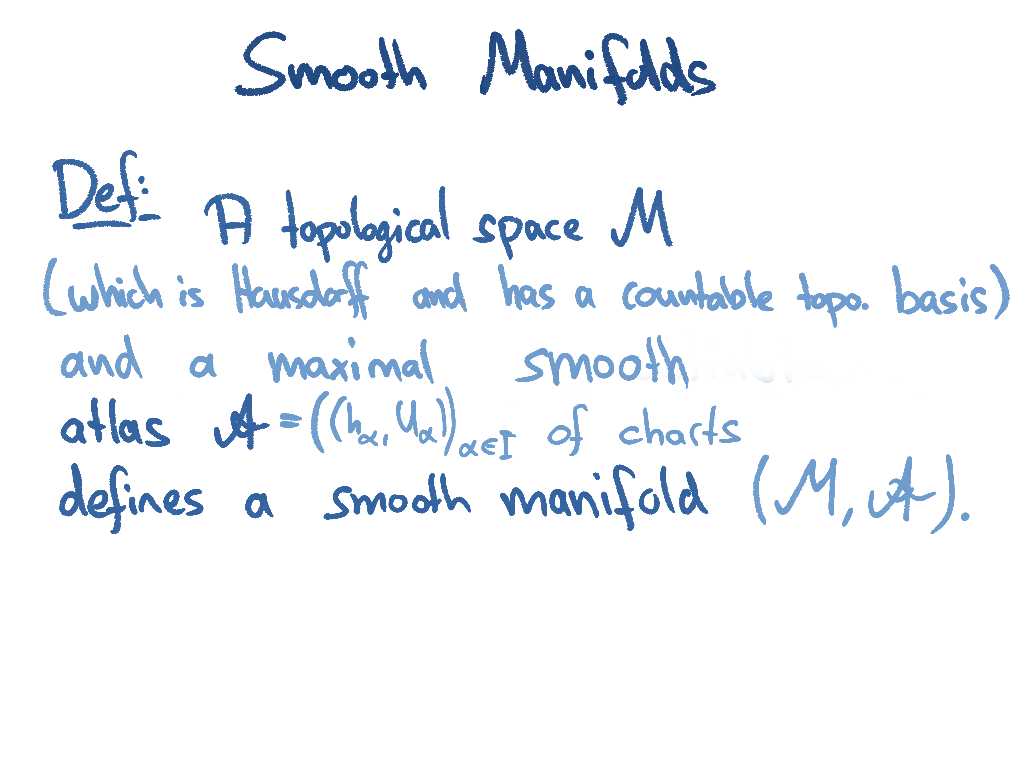 Smooth Manifolds
Def:
A topological space M
(which is Hausdorff and has a countable topo. basis)
and a maximal smooth
atlas 𝒜 = ((h_α, U_α))_{α∈I} of charts
defines a smooth manifold (M, 𝒜).